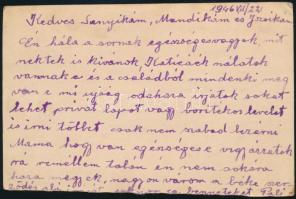 1946 VII/22
Kedves Sanyikám, Mandikám és Jzsikám
Én hála a sornak egészséges vagyok, mit
nektek is kivánok Katicáék nálatok
vannak e és a családból mindenki meg
van e mi ujság odahara irjatok sokat
lehet privát lapot vagy boritékos levelet
is irni többet csak nem szabad bezárni
Mama hogy van egészséges e vigyázzatok
rá remélem talán én nem sokára
haza megyek, nagyon várom a béke szer
ződés alá bennetek Pali